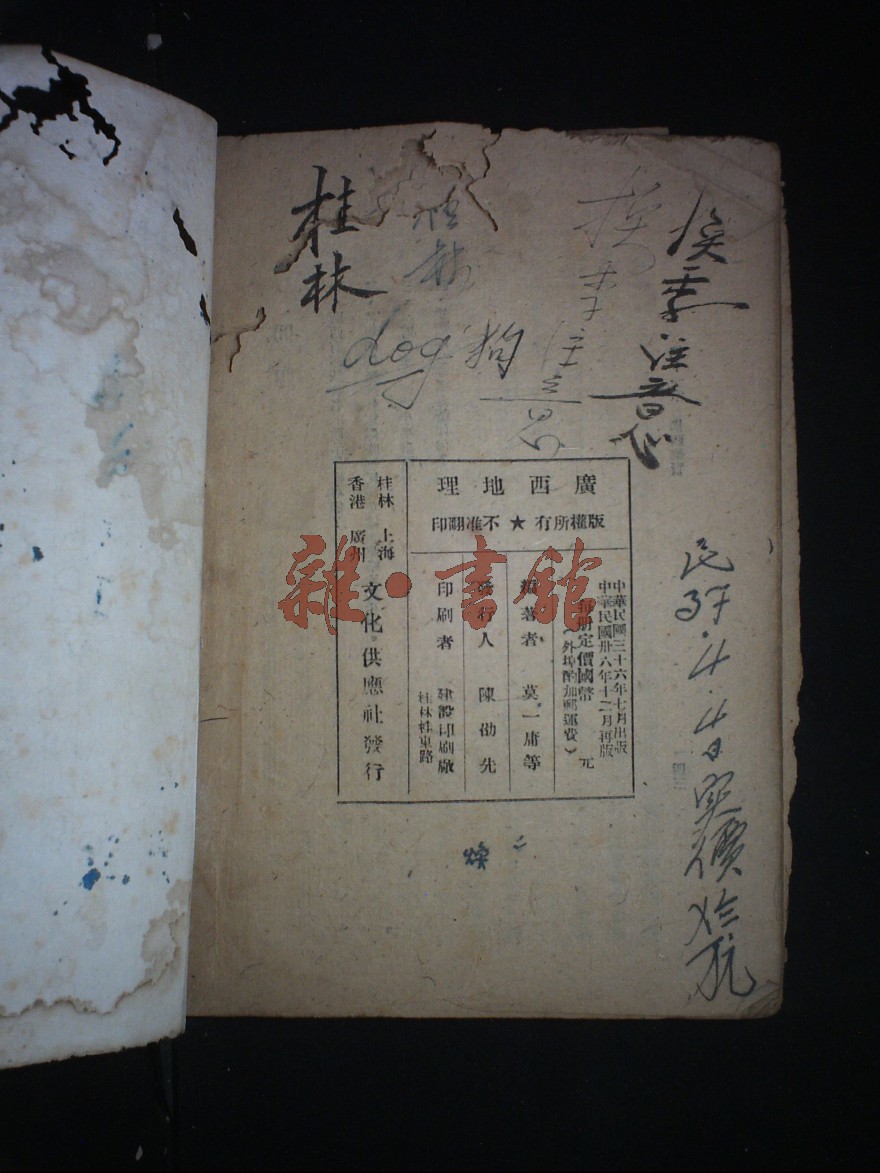 桂林
dog 狗
注音
廣西地理
版權所有★不准翻印
中華民國三十六年七月出版
中華民國卅六年十二月再版
每册定價國幣 元
(外埠酌加郵運費)
編著者 莫一庸等
發行人 陳劭先
印刷者 建設印刷廠
桂林桂東路
桂林 上海
香港 廣州
文化供應社發行
雜·書館
民37.4.4日实價